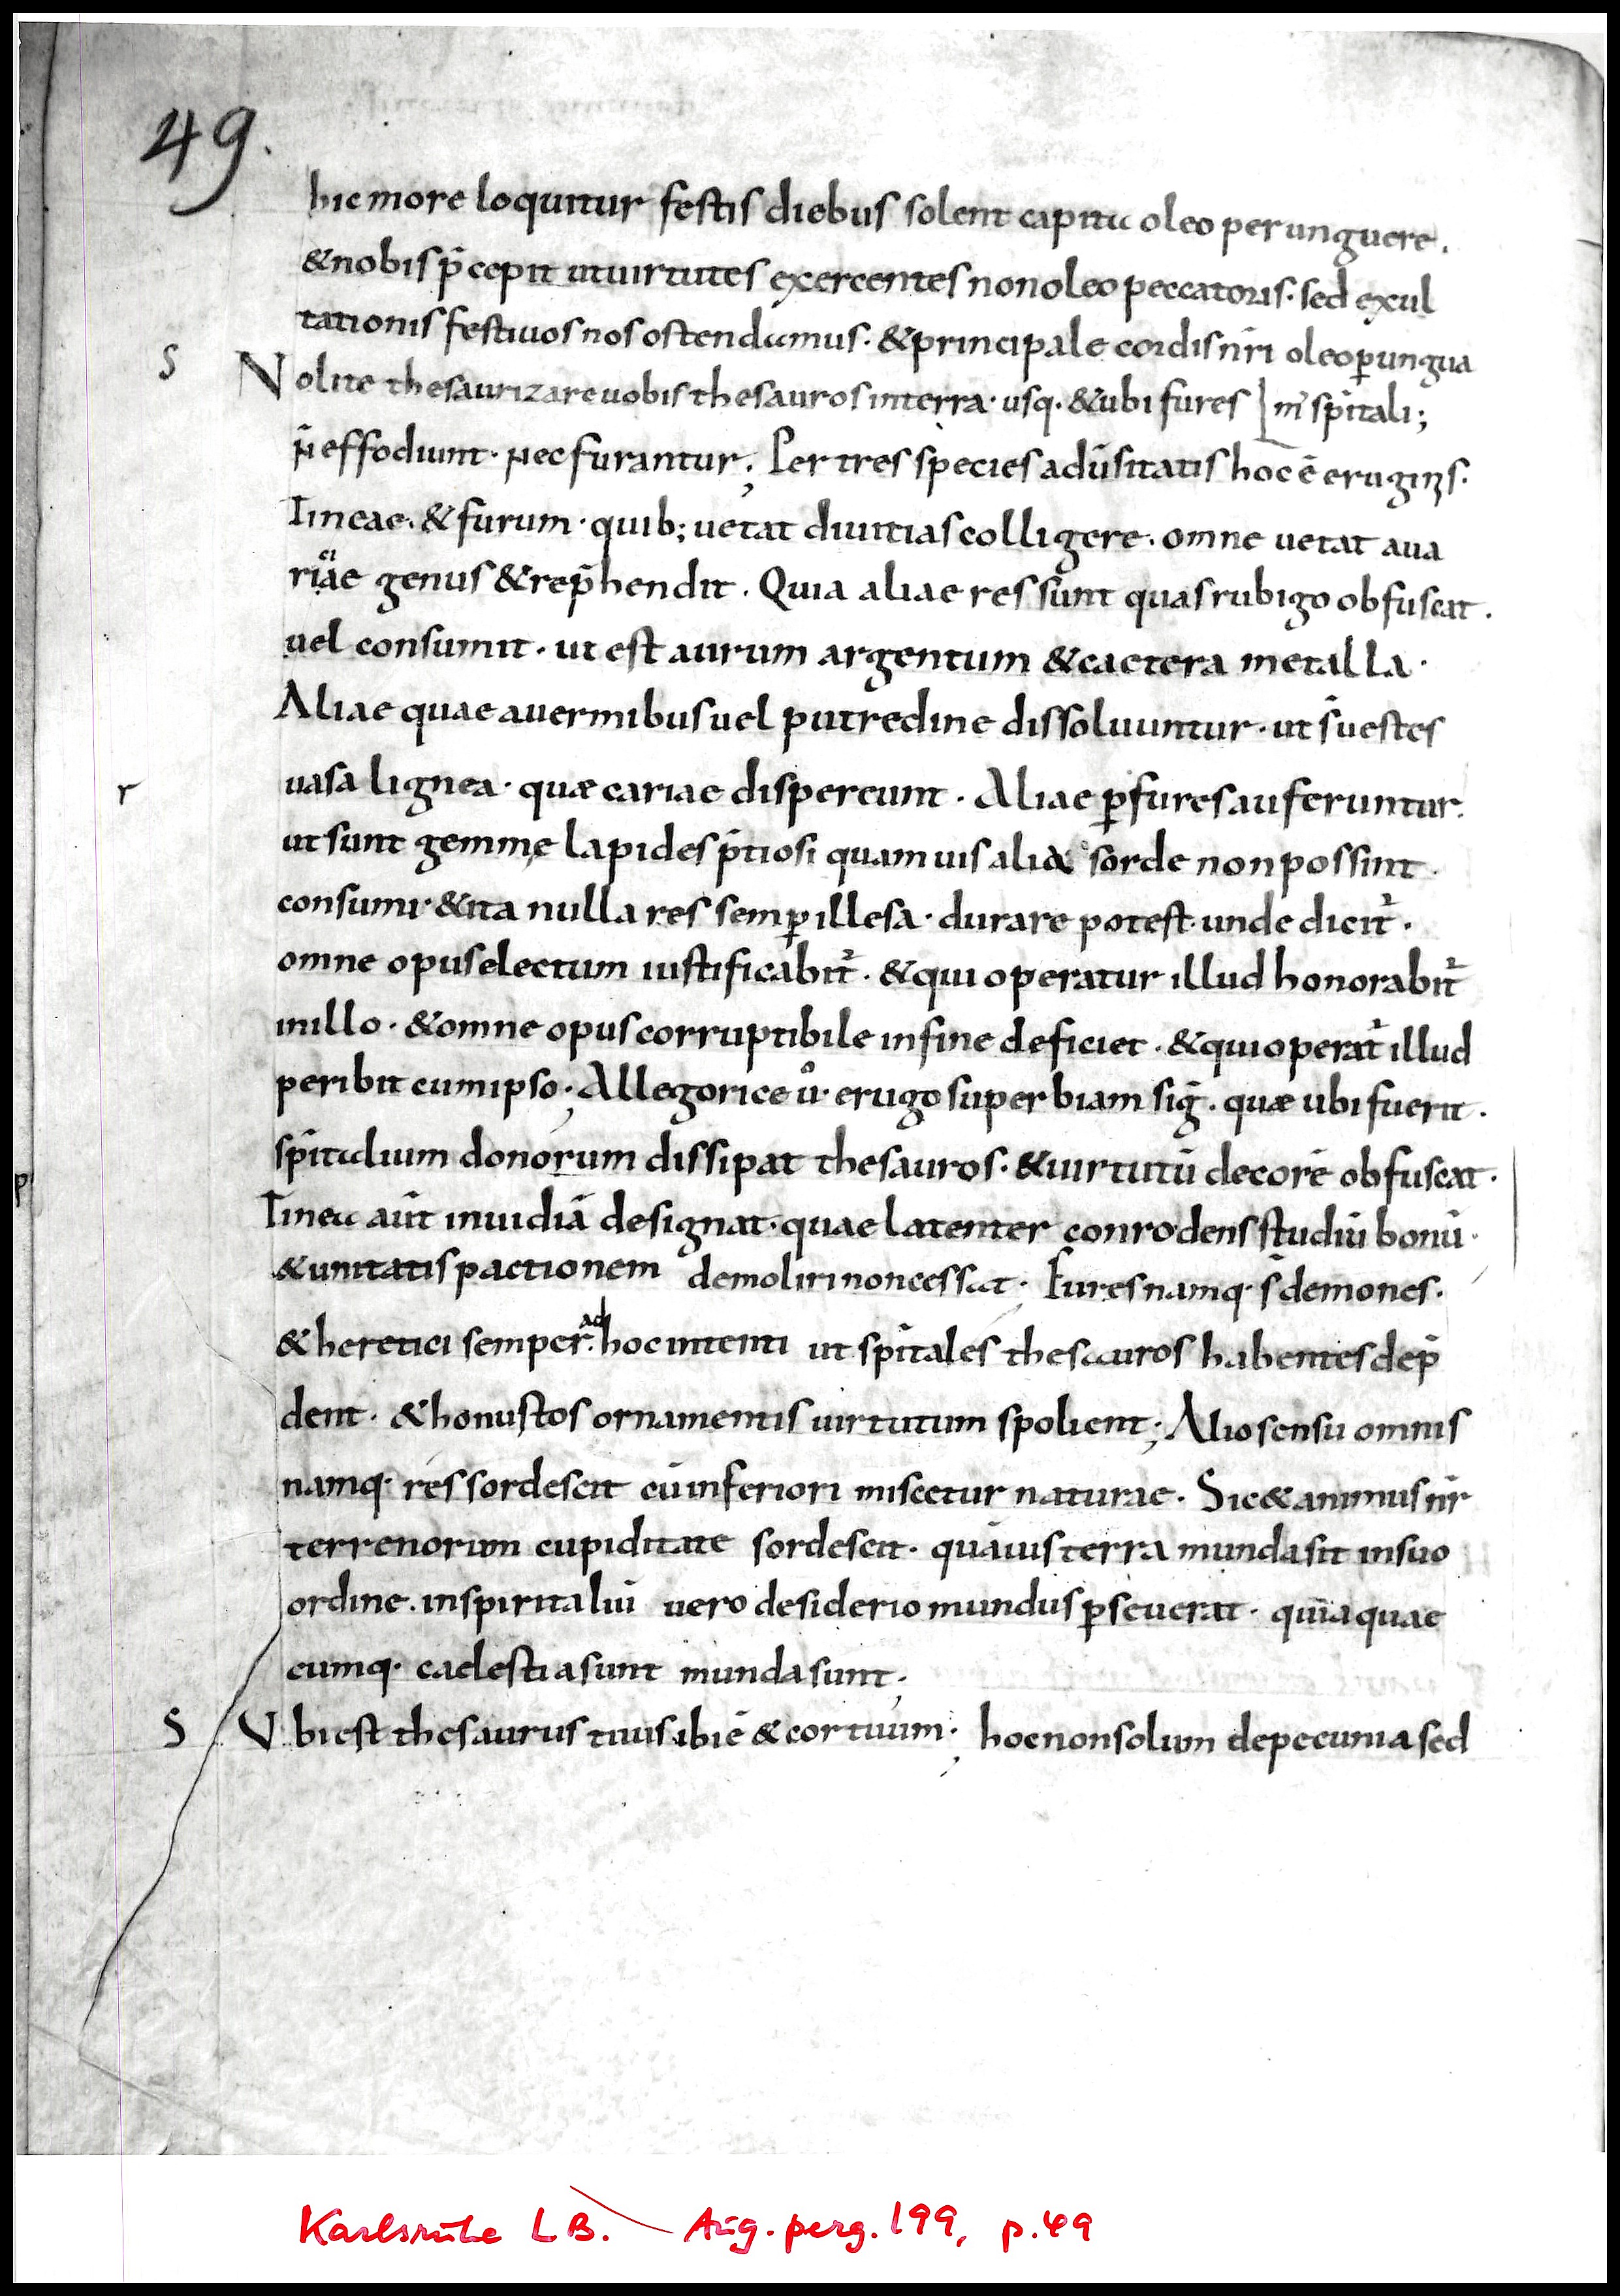 49.
hic more loquitur festis diebus solent capita oleo perunguere.
& nobis p̄cepit ut uirtutes exercentes non oleo peccatoris· sed exul
tationis festiuos nos ostendamus· & principale cordis nr̄i oleo ꝑungua
S Nolite thesaurizare uobis thesauros in terra· usq· & ubi fures [m̄ sp̄itali;
n̄ effodiunt· nec furantur; Per tres species aduersitatis hoc ē eruginis·
Tineae· & furum· quib; uetat diuitias colligere· omne uetat aua
riciae genus & rep̄hendit. Quia aliae res sunt quas rubigo obfuscat.
uel consumit· ut est aurum argentum & caetera metalla·
Aliae quae a uermibus uel putredine dissoluuntur· ut s̄ uestes
r uasa lignea· quæ cariae dispereunt. Aliae ꝑ fures auferuntur.
ut sunt gemmę lapides p̄tiosi quam uis alia sorde non possint
consumi· & ita nulla res semꝑ illesa· durare potest· unde dicit᷑.
omne opus electum iustificabit᷑. & qui operatur illud honorabit᷑
in illo· & omne opus corruptibile in fine deficiet. & qui operat᷑ illud
peribit cum ipso; Allegorice u̾· erugo superbiam siḡ. quæ ubi fuerit.
sp̄italium donorum dissipat thesauros· & uirtutū decorē obfuscat·
Tinea aūt inuidiā designat· quae latenter conrodens studiū bonū·
& unitatis pactionem demoliri non cessat; Fures namq· s̄ demones.
& heretici semper ad hoc intenti ut sp̄itales thesauros habentes dep̄
dent· & honustos ornamentis uirtutum spolient; Alio sensu omnis
namq· res sordescit cū inferiori miscetur naturae. Sic & animus nr̄
terrenorum cupiditate sordescit· quāuis terra munda sit in suo
ordine. in spiritalui uero desiderio mundus ꝑseuerat· quia quae
cumq· caelestia sunt munda sunt;
S Ubi est thesaurus tuus ibi ē & cor tuum; hoc non solum de pecunia sed
p
Karlsruhe LB. Aug. perg. 199, p. 49